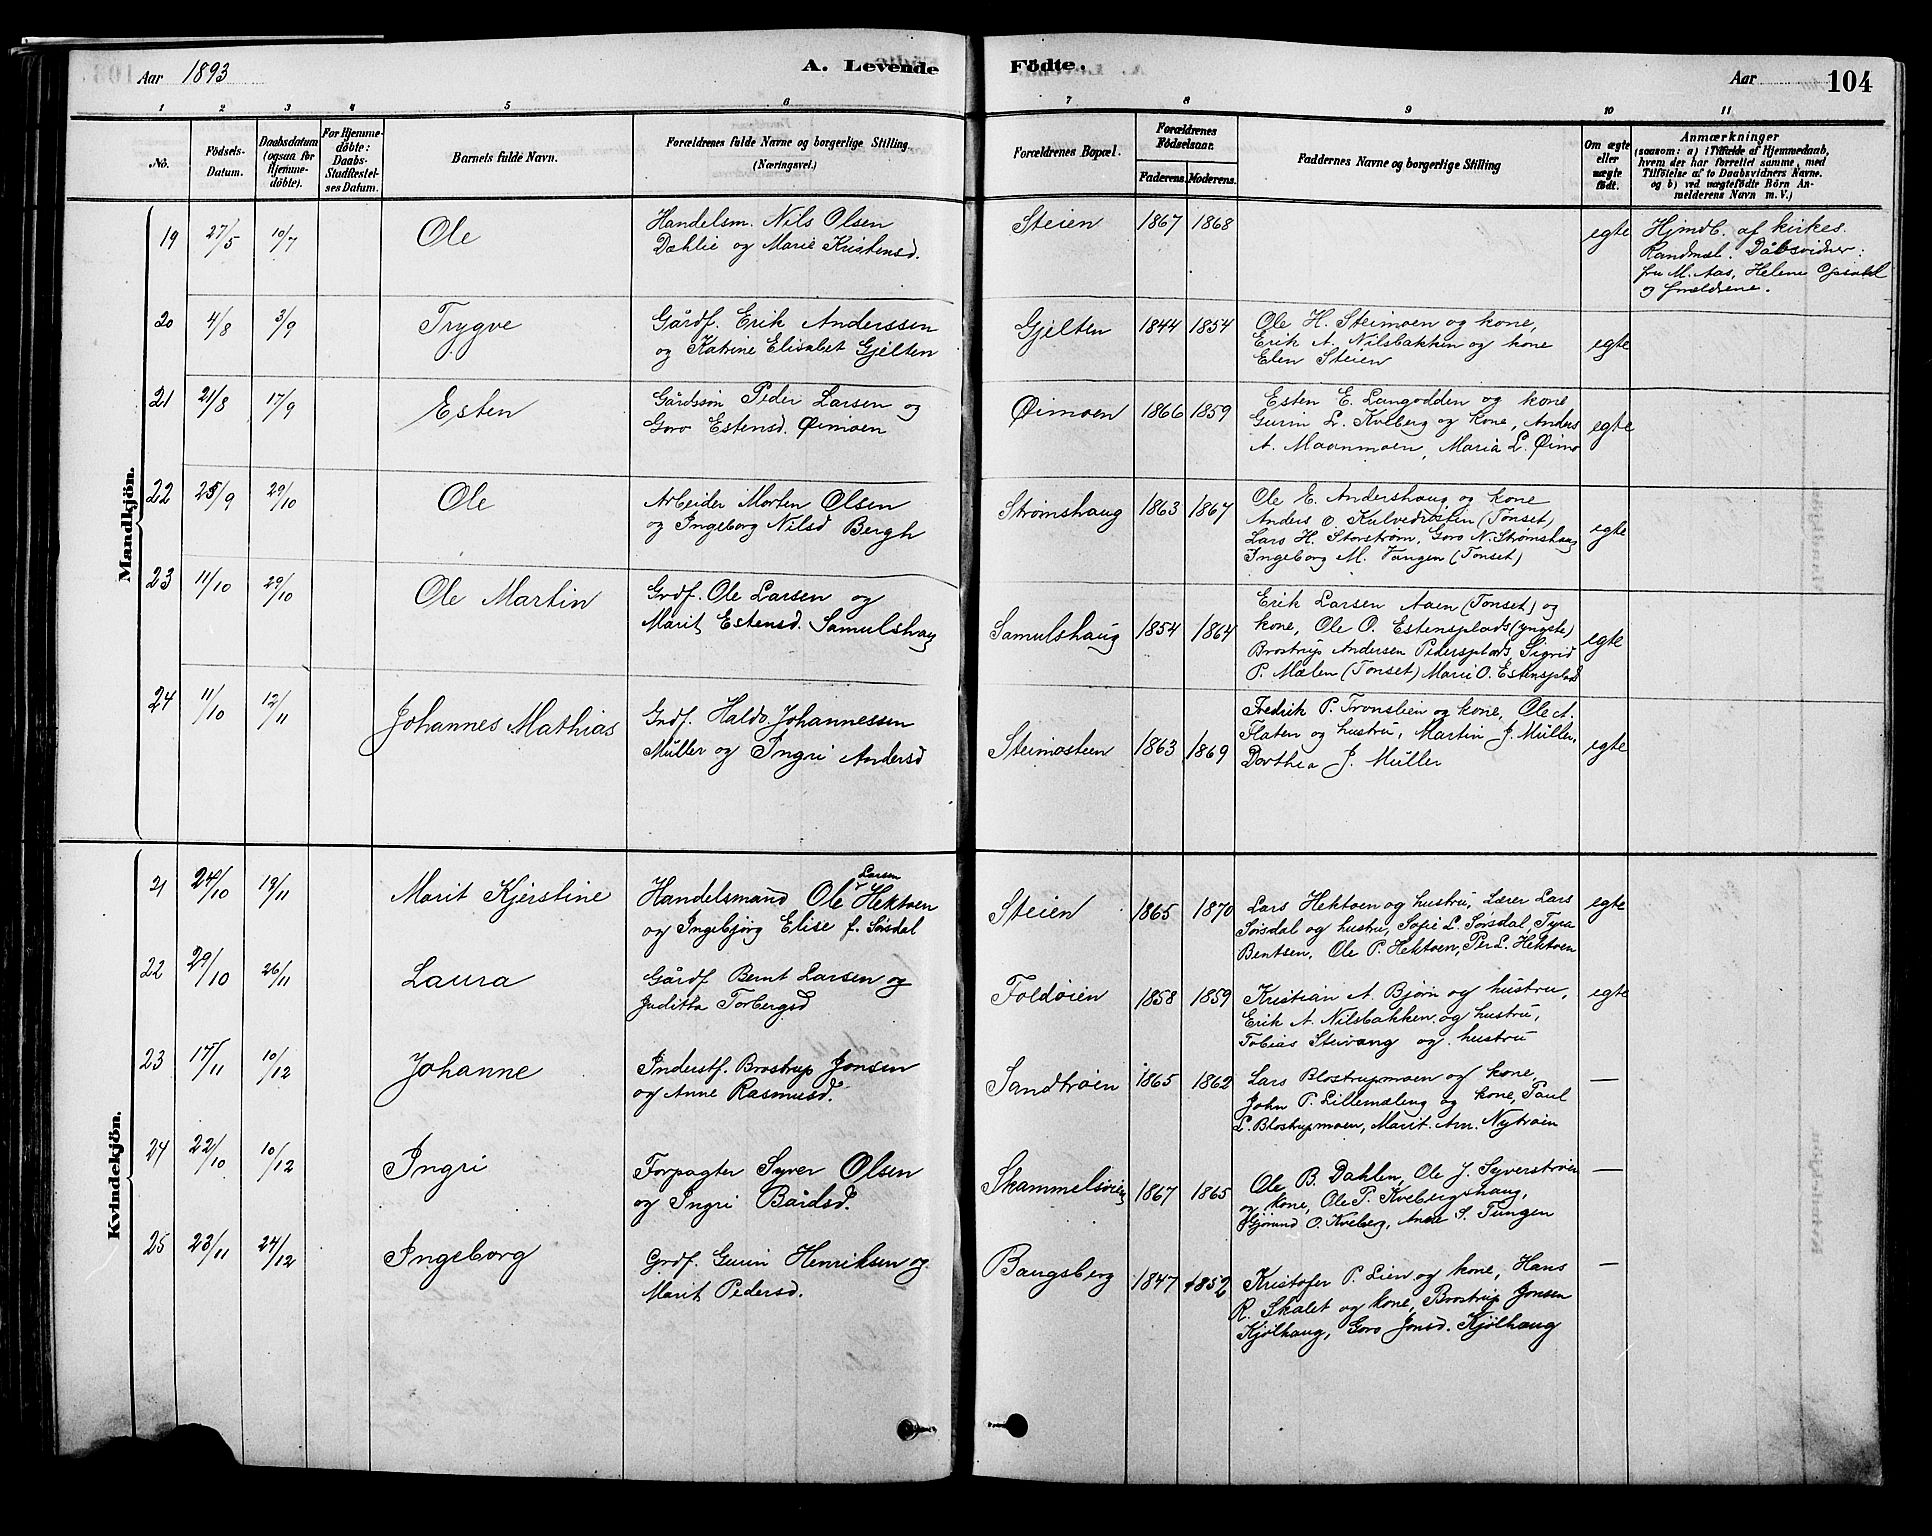 Aar 1893
A. Levende Födte.
Aar 104
1 2 3 4 5 6 7 8 9 10 11
No.
Födsels-Datum.
Daabsdatum (ogsaa for Hjemme-döbte).
For Hjemme-döbte: Daabs-Stadfæstelses Datum.
Barnets fulde Navn.
Forældrenes fulde Navne og borgerlige Stilling (Næringsvei.)
Forældrenes Bopæl.
Forældrenes Födselsaar.
Faderens. Moderens.
Faddernes Navne og borgerlige Stilling
Om ægte eller uægte födt.
Anmærkninger
(saasom: a) i Tilfælde af Hjemmedaab, hvem der har forrettet samme, med Tilföielse af to Daabsvidners Navne. og b) ved uægtefödte Börn Anmelderens Navn m. V.)
Mandkjön.
19 27/5 10/7 Ole
Handelsm. Nils Olsen
Dæhlie og Marie Kristensd.
Steien 1867 1868
egte
Hjmdb. af kirkes.
Randmæl. Dåbsvidner:
fru M. Aas, Helene
og forældrene.
20 4/8 3/9 Trygve
Gårdf. Erik Anderssen
og Katrine Elisabet Gjelten
Gjelten 1844 1854
Ole H. Steimoen og kone,
Erik A. Nilsbakken og kone
Elen Steien
egte
21 21/8 17/9 Esten
Gårdssön Peder Larsen og
Goro Estensd. Øimoen
Øimoen 1866 1859
Esten E. Langodden og kone
Gurin L. Kvlberg og kone, Anders
A. Moanmoen, Maria L. Øimo
egte
22 25/9 29/10 Ole
Arbeider Morten Olsen
og Ingeborg Nilsd Bergh
Strömshaug 1863 1867
Ole E. Andershaug og kone
Anders O. Kulvedrösten (Tönset)
Lars H. Storström, Goro N. Strömshaug
Ingeborg M. Vangen (Tönset)
egte
23 11/10 29/10 Ole Martin
Grdf. Ole Larsen og
Marit Estensd. Samulshaug
Samulshaug 1854 1864
Erik Larsen Aaen (Tönset) og
kone, Ole O. Estensplads (yngste)
Brostrup Andersen Pedersplads Sigrid
P. Mælen (Tönset) Marie O. Estensplad
egte
24 11/10 12/11 Johannes Mathias
Grdf. Haldo Johannessen
Müller og Ingri Andersd
Steimosteen 1863 1869
Fredrik P. Tronslien og kone, Ole A.
Flaten og hustru, Martin J. Müller,
Dorthea J. Müller
egte
Kvindekjön.
21 24/10 19/11 Marit Kjerstine
Handelsmand Ole Larsen Hektoen
og Ingebjörg Elise f. Sörsdal
Steien 1865 1870
Lars Hektoen og hustru, Lærer Lars
Sörsdal og hustru, Sofie L. Sörsdal, Tyra
Bentsen, Ole P. Hektoen, Per L. Hektoen
egte
22 29/10 26/11 Laura
Gårdf Bernt Larsen og
Juditha Torbergsd
Foldöien 1858 1859
Kristian A. Björn og hustru,
Erik A. Nilsbakken og hustru,
Tobias Steivang og hustru
egte
23 15/11 10/12 Johanne
Inderstf. Brostrup Jonsen
og Anne Rasmusd.
Sandtröen 1865 1862
Lars Blostrupmoen og kone,
John P. Lillemæleng og kone, Paul
L. Blostrupmoen, Marit Am. Nytröen
—
24 22/10 10/12 Ingri
Forpagter Syver Olsen
og Ingri Bårdsd.
Skammelsöien 1867 1865
Ole B. Dahlen, Ole J. Syverströen
og kone, Ole P. Kvebergshaug,
Gjörund O. Kveberg, Anne S. Tungen
—
25 23/11 24/12 Ingeborg
Grdf. Gurin Henriksen og
Marit Pedersd.
Bangsberg 1847 1852
Kristofer P. Lien og kone, Hans
R. Skalet og kone, Brostrup Jonsen
Kjölhaug, Goro Jonsd. Kjölhaug
—